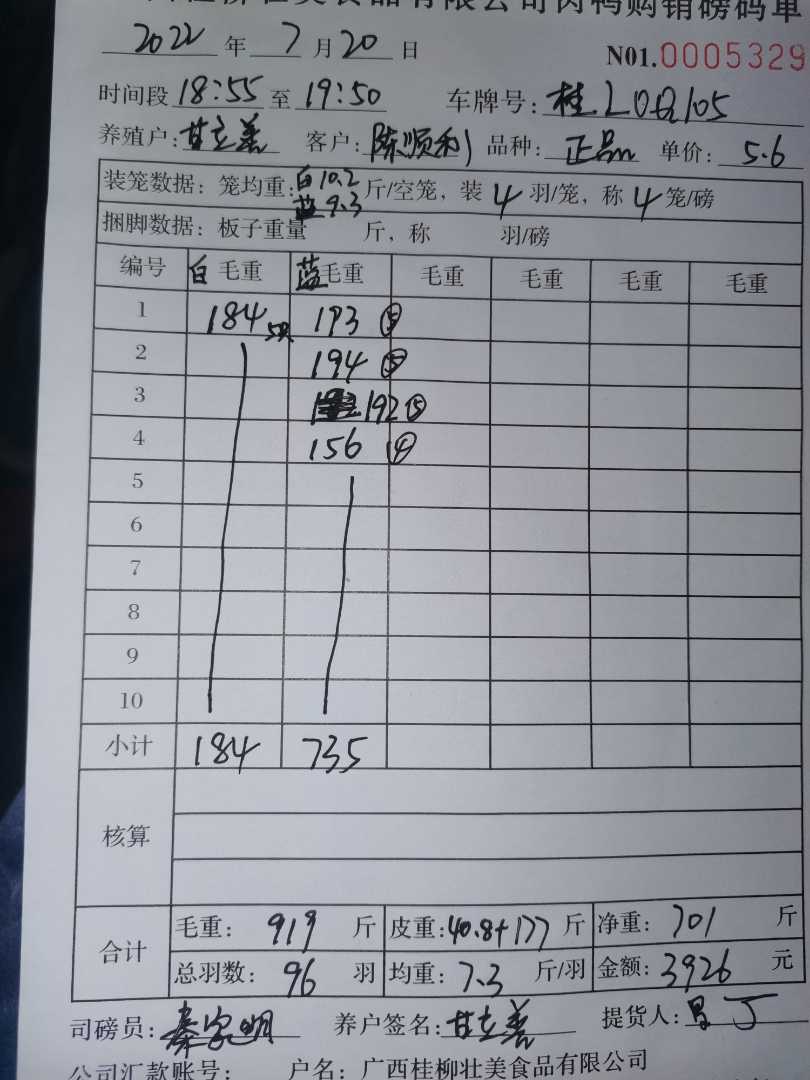 桂柳壮美食品有限公司肉鸭购销磅码单
2022 年 7 月 20 日 N01.0005329
时间段 18:55 至 19:50 车牌号:
养殖户: 甘立善 客户: 陈顺利 品种: 正品 单价: 5.6
装笼数据: 笼均重: 白 10.2 斤/空笼, 装 4 羽/笼, 称 4 笼/磅
蓝 9.3
捆脚数据: 板子重量 斤, 称 羽/磅
编号 白 毛重 蓝 毛重 毛重 毛重 毛重 毛重
1 184 193 ⑤
2 194 ⑤
3 192 ⑤
4 156 ④
5
6
7
8
9
10
小计 184 735
核算
合计 毛重: 919 斤 皮重: 40.8+177 斤 净重: 701 斤
总羽数: 96 羽 均重: 7.3 斤/羽 金额: 3926 元
司磅员: 秦家明 养户签名: 甘立善 提货人:
公司汇款账号: 户名: 广西桂柳壮美食品有限公司